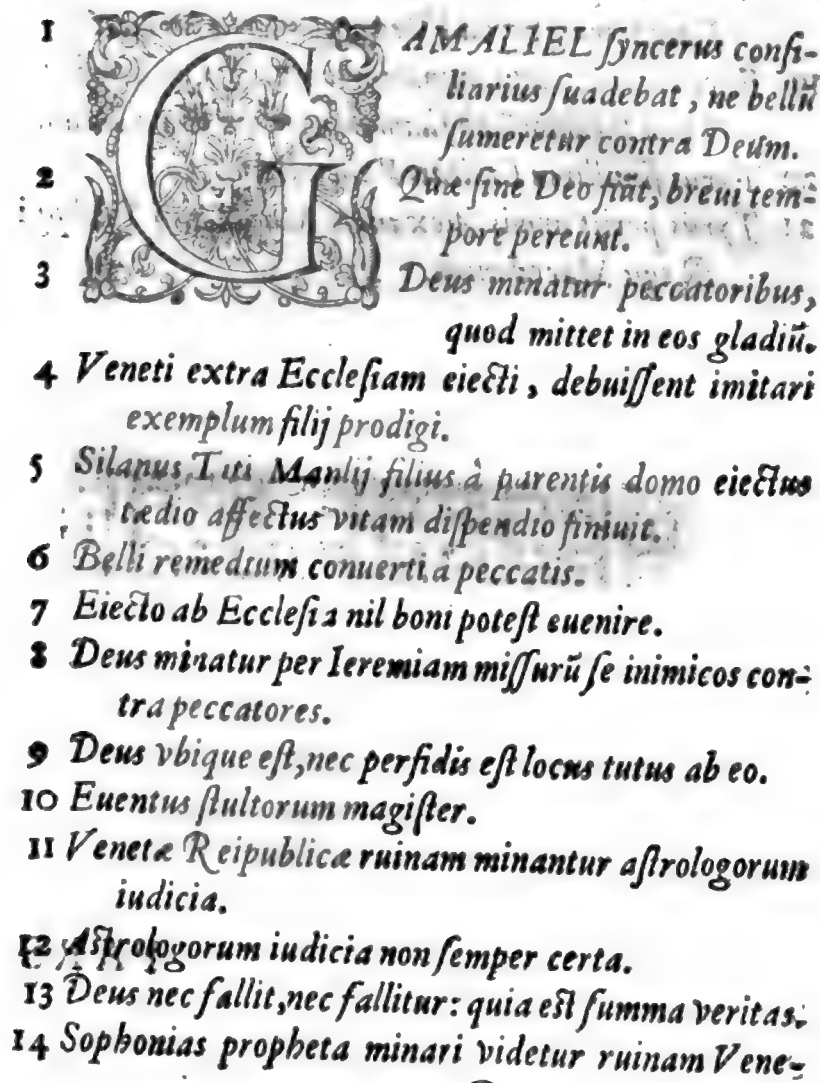 1 GAMALIEL ſyncerus conſi-
liarius ſuadebat, ne bellũ
ſumeretur contra Deum.
2 Quæ ſine Deo fiãt, breui tem-
pore pereunt.
3 Deus minatur peccatoribus,
quod mittet in eos gladiũ.
4 Veneti extra Eccleſiam eiecti, debuiſſent imitari
exemplum filij prodigi.
5 Silanus, Titi Manlij filius à parentis domo eiectus
tædio affectus vitam diſpendio finiuit.
6 Belli remedium conuerti à peccatis.
7 Eiecto ab Eccleſia nil boni poteſt euenire.
8 Deus minatur per Ieremiam miſſurũ ſe inimicos con-
tra peccatores.
9 Deus vbique eſt, nec perfidis eſt locus tutus ab eo.
10 Euentus ſtultorum magiſter.
11 Venetæ Reipublicæ ruinam minantur aſtrologorum
iudicia.
12 Aſtrologorum iudicia non ſemper certa.
13 Deus nec fallit, nec fallitur: quia eſt ſumma veritas.
14 Sophonias propheta minari videtur ruinam Vene-